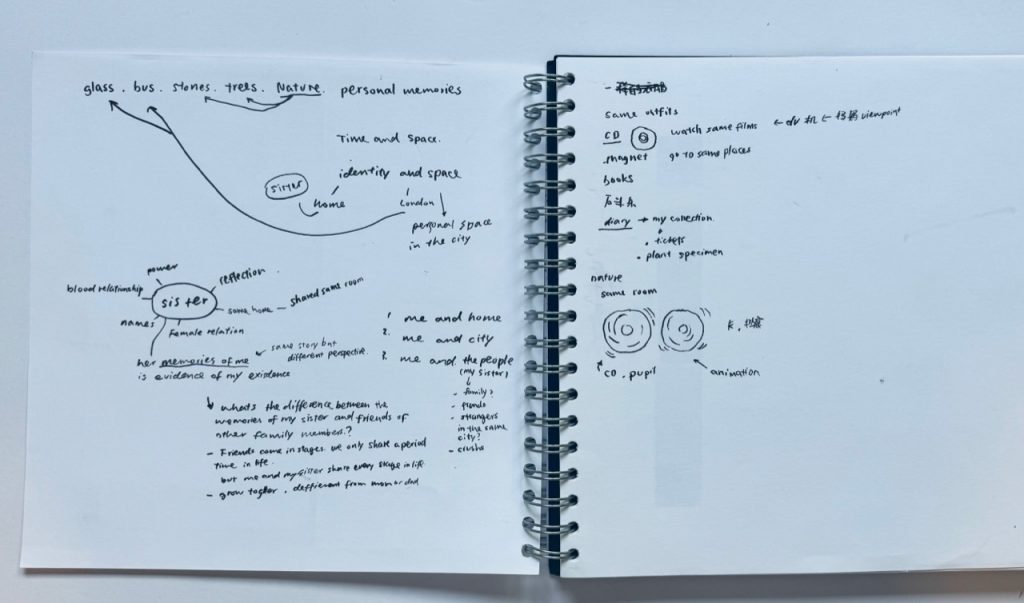 glass . bus . stones . trees . Nature . personal memories
Time and space.
identity and space
sister
home
London
personal space
in the city
power
reflection
blood relationship
sister
same home — shared same room
names
Female relation
her memories of me
is evidence of my existence
same story but
different perspective.
1. me and home
2. me and city
3. me and the people
(my sister)
- family?
- friends
- strangers
in the same
city?
- crushs
whats the difference between the
memories of my sister and friends of
other family members?
- Friends come in stages we only share a period
time in life.
but me and my sister share every stage in life
- grow togher . deffierent from mom or dad
same outfits
CD
watch same films ← 机 ← viewpoint
magnet go to same places
books
diary → my collection.
• tickets
• plant specimen
nature
same room
CD . pupil
animation